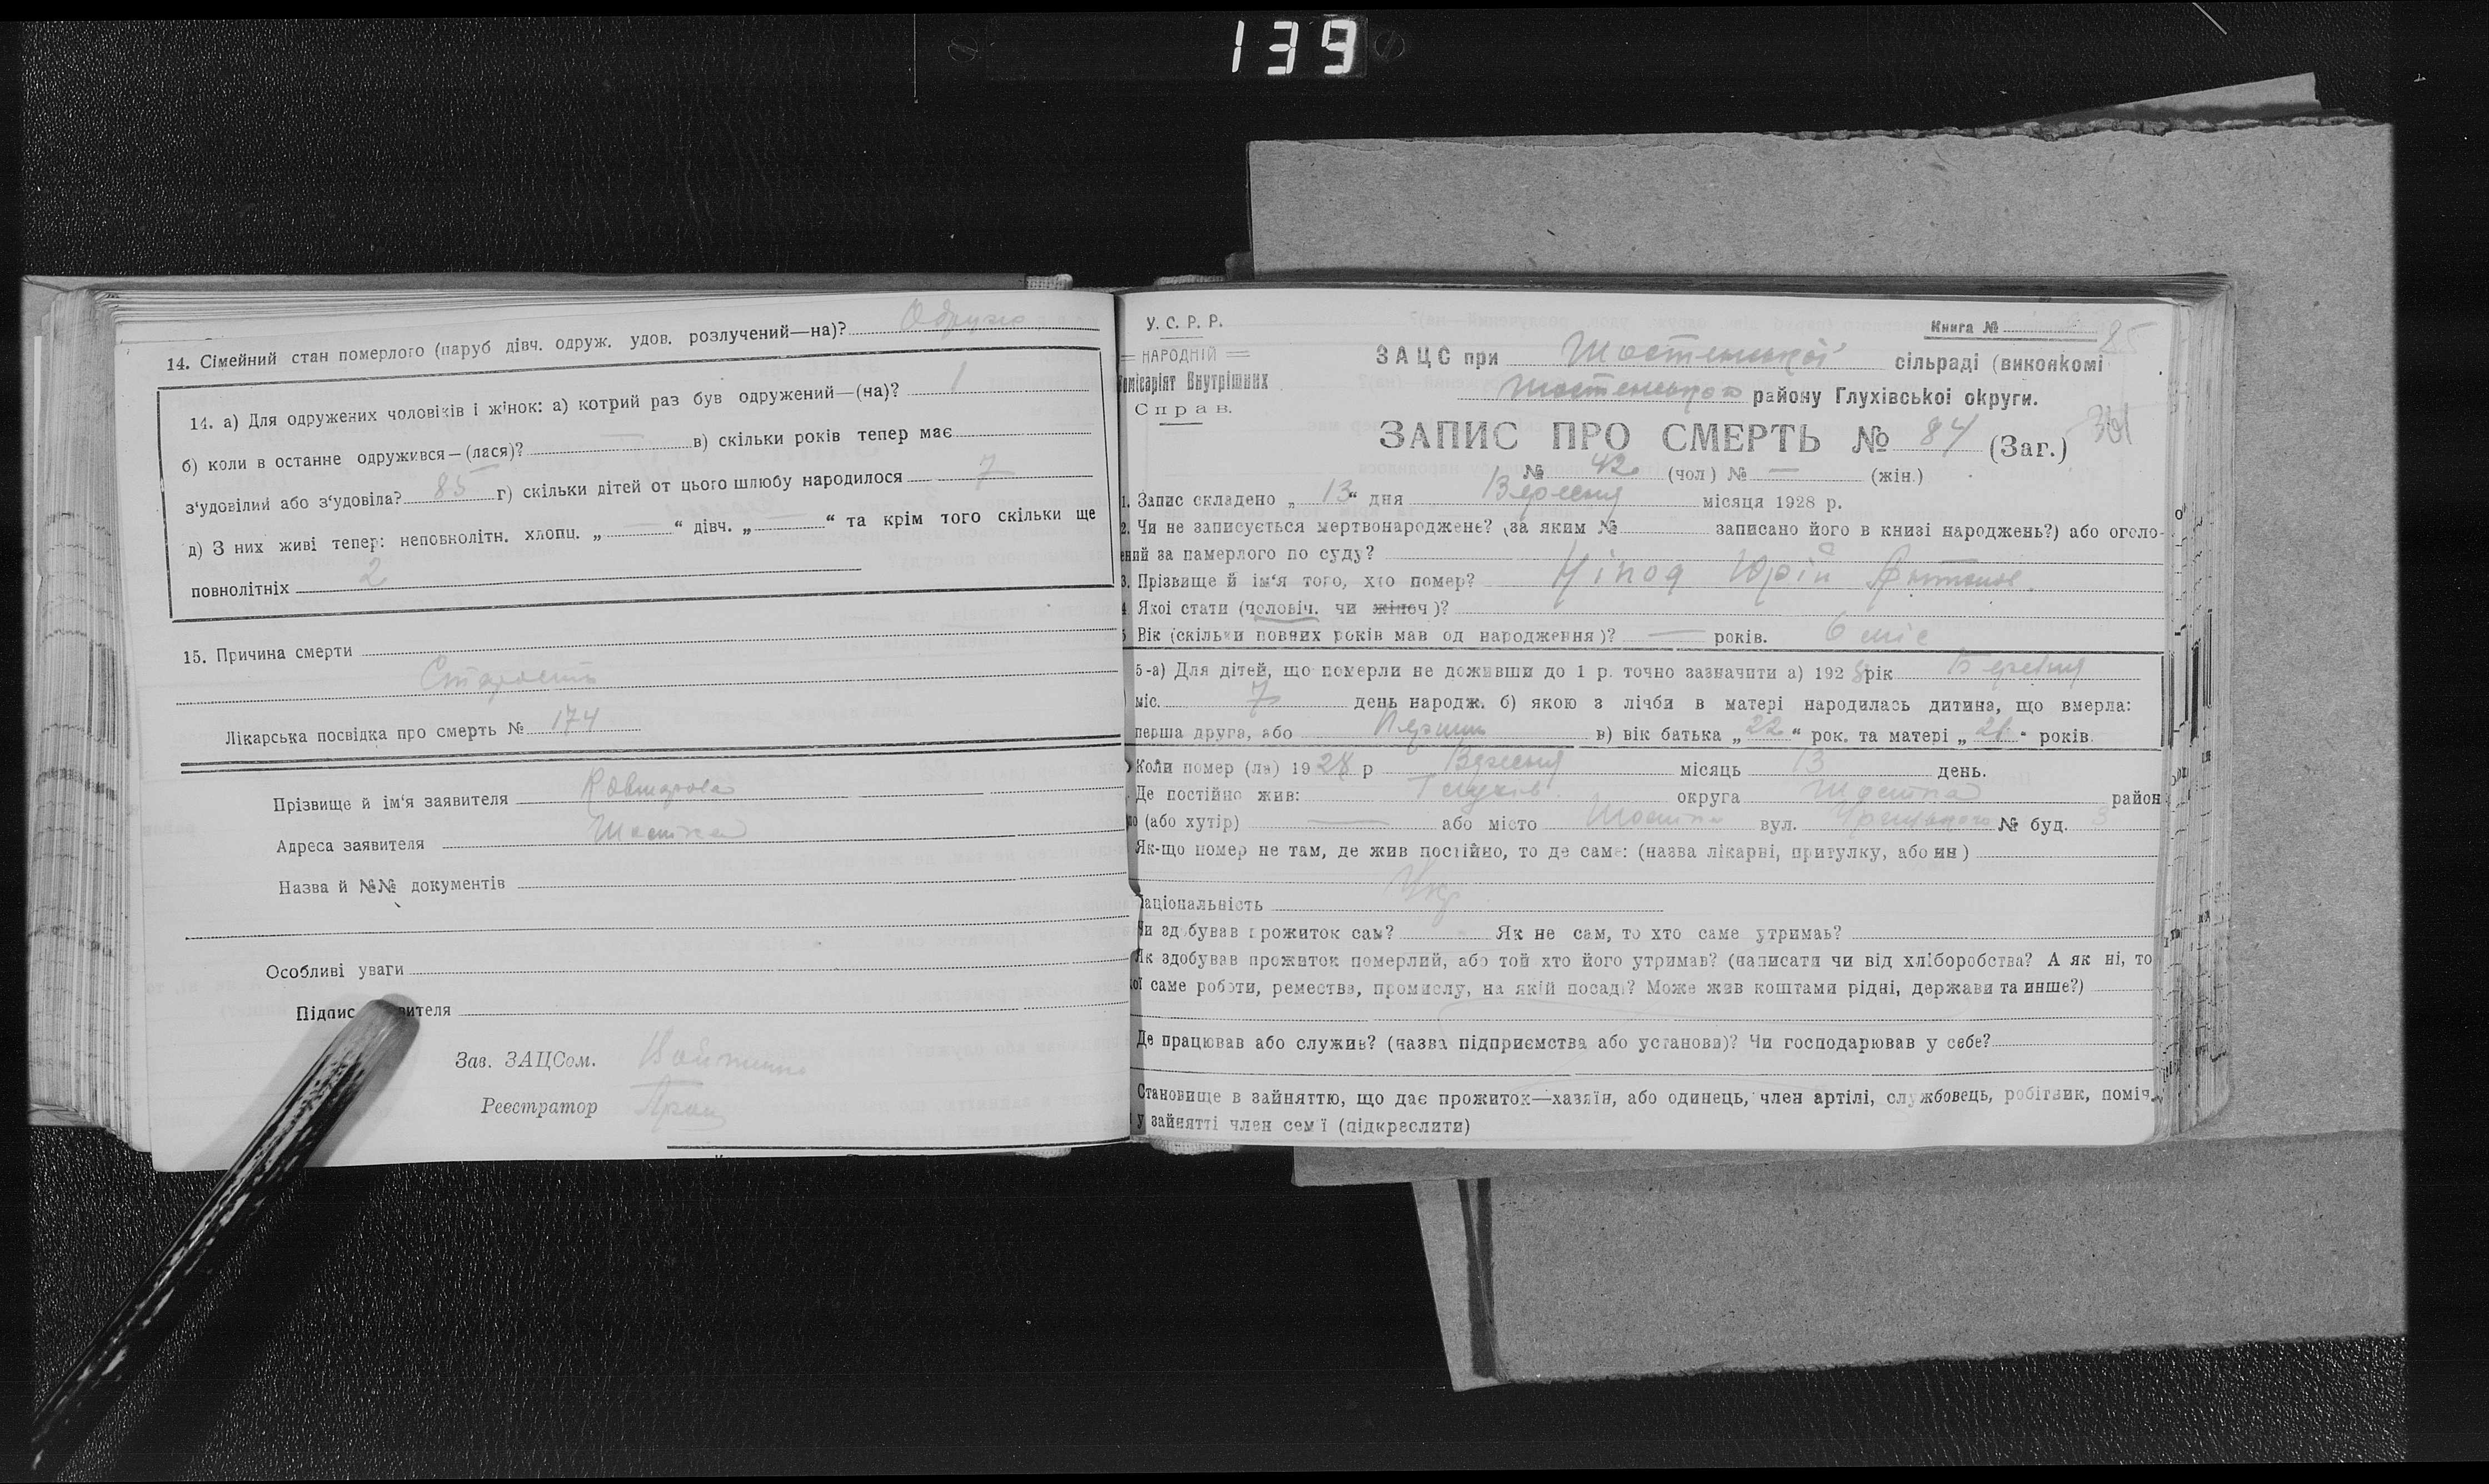 139
14. Сімейний стан померлого (паруб дівч. одруж. удов. розлучений—на)? Одруж
14. а) Для одружених чоловіків і жінок: а) котрий раз був одружений—(на)? 1
б) коли в останне одружився—(лася)? — в) скільки років тепер має
з'удовілий або з'удовіла? 85 г) скільки дітей от цього шлюбу народилося 7
д) З них живі тепер: неповнолітн. хлопц. „ — “ дівч. „ — “ та крім того скільки ще
повнолітніх 2
15. Причина смерти
Старость
Лікарська посвідка про смерть № 174
Прізвище й ім'я заявителя
Адреса заявителя Шостка
Назва й №№ документів
Особливі уваги
Підпис вителя
Зав. ЗАЦСом.
Реєстратор
У. С. Р. Р.
НАРОДНІЙ
омісаріят Внутрішних
Справ.
Книга №
85
ЗАЦС при Шостенської сільраді (виконкомі
Шостенського району Глухівської округи.
ЗАПИС ПРО СМЕРТЬ № 84 (Заг.)
№ 42 (чол) № — (жін.)
1. Запис складено „ 13 “ дня Вересня місяця 1928 р.
2. Чи не записується мертвонароджене? (за яким № записано його в книзі народжень?) або оголо-
ений за памерлого по суду?
3. Прізвище й ім'я того, хто помер? Юрій Антонов.
4. Якої стати (чоловіч. чи жіноч)?
5 Вік (скільки повних років мав од народження)? — років. 6 міс
5-а) Для дітей, що померли не доживши до 1 р. точно зазначити а) 1928 рік Березня
міс. 7 день народж. б) якою з лічби в матері народилась дитина, що вмерла:
перша друга, або Першим в) вік батька „ 22 “ рок. та матері „ 21 “ років.
Коли помер (ла) 1928 р Вересня місяць 13 день.
Де постійно жив: Глухів округа Шостка район
(або хутір) — або місто Шостка вул. № буд. 3
Як-що помер не там, де жив постійно, то де саме: (назва лікарні, притулку, або ин)
Національність Укр
Чи здобував прожиток сам? - Як не сам, то хто саме утримав?
Як здобував прожиток померлий, або той хто його утримав? (написати чи від хліборобства? А як ні, то
ої саме роботи, ремества, промислу, на якій посаді? Може жив коштами рідні, держави та инше?)
Де працював або служив? (назва підприємства або установи)? Чи господарював у себе?
Становище в зайняттю, що дає прожиток—хазяїн, або одинець, член артілі, службовець, робітник, поміч.
у зайнятті член сем'ї (підкреслити)